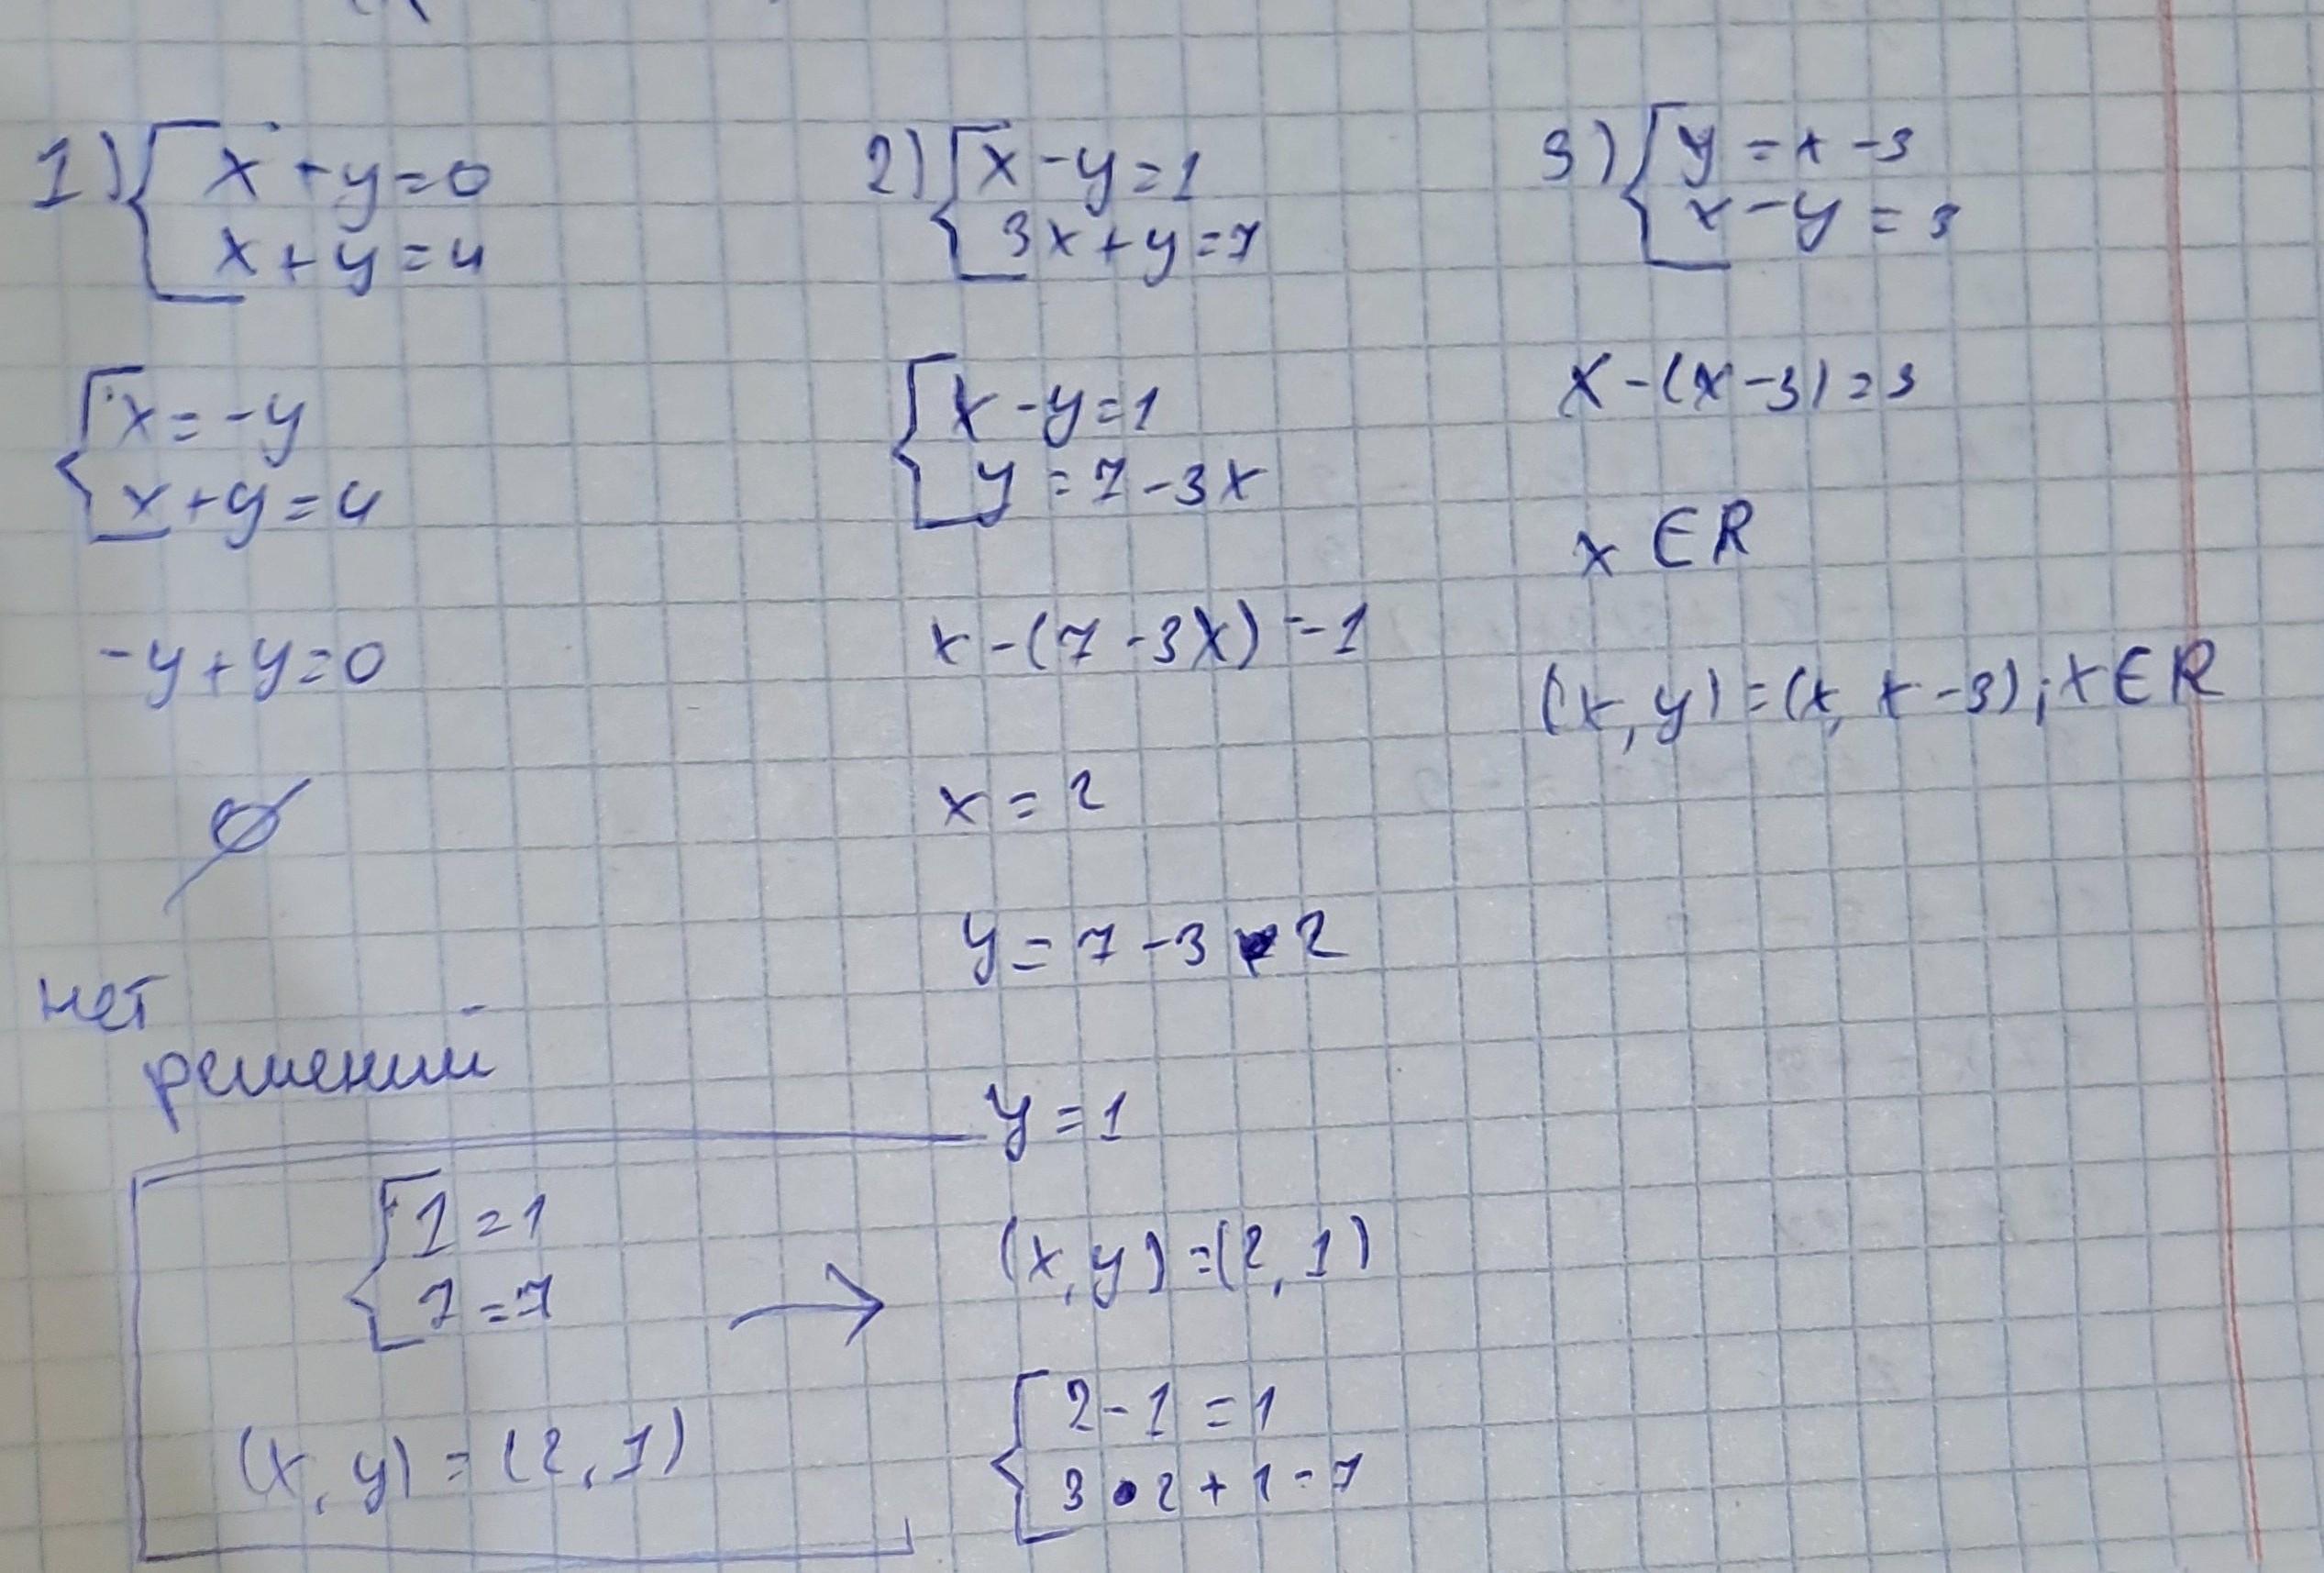 1) { x + y = 0
x + y = 4
{ x = -y
x + y = 4
-y + y = 0
∅
нет
решений
2) { x - y = 1
3x + y = 7
{ x - y = 1
y = 7 - 3x
x - (7 - 3x) = 1
x = 2
y = 7 - 3 • 2
y = 1
(x, y) = (2, 1)
{ 2 - 1 = 1
3 • 2 + 1 = 7
{ 1 = 1
7 = 7
→
(x, y) = (2, 1)
3) { y = x - 3
x - y = 3
x - (x - 3) = 3
x ∈ R
(x, y) = (x, x - 3); x ∈ R